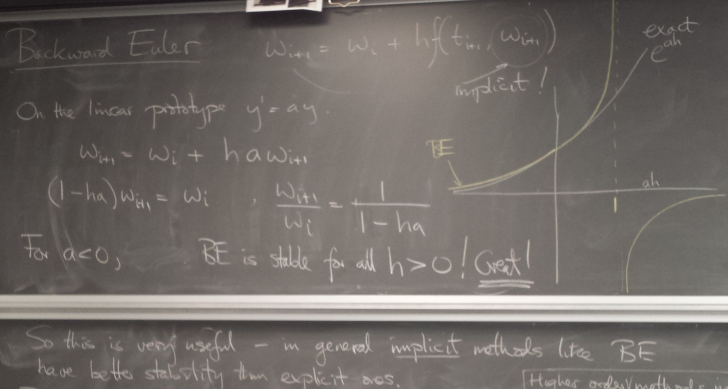 Backward Euler
w_{i+1} = w_i + hf(t_{i+1}, w_{i+1})
implicit!
exact
e^{ah}
On the linear prototype y' = ay.
w_{i+1} = w_i + haw_{i+1}
BE
(1-ha)w_{i+1} = w_i , w_{i+1}/w_i = 1/(1-ha)
ah
1
For a<0, BE is stable for all h>0! Great!
So this is very useful – in general implicit methods like BE
have better stability than explicit ones.
Higher order methods